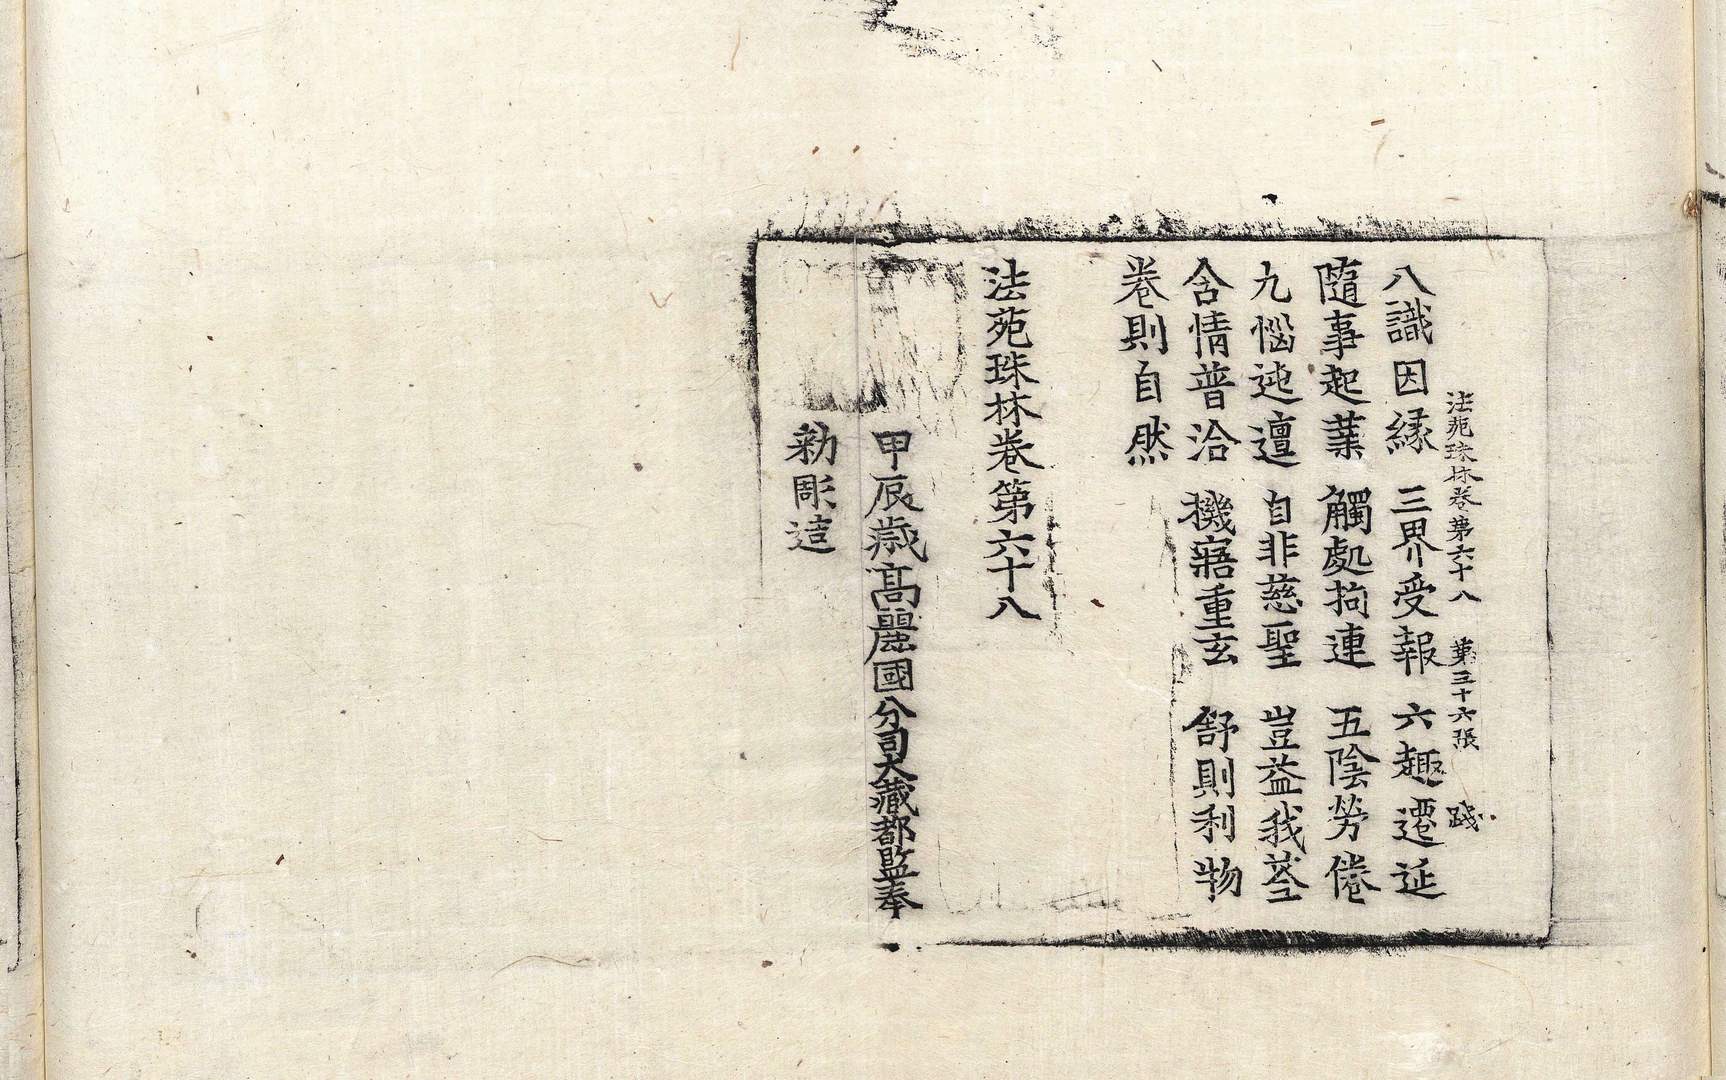 法苑珠林卷第六十八 第三十六張 踐
八識因緣 三界受報 六趣遷延
隨事起業 觸處拘連 五陰勞倦
九惱迍邅 自非慈聖 豈益我荃
含情普洽 機寤重玄 舒則利物
卷則自然
法苑珠林卷第六十八
甲辰歲高麗國分司大藏都監奉
勑彫造